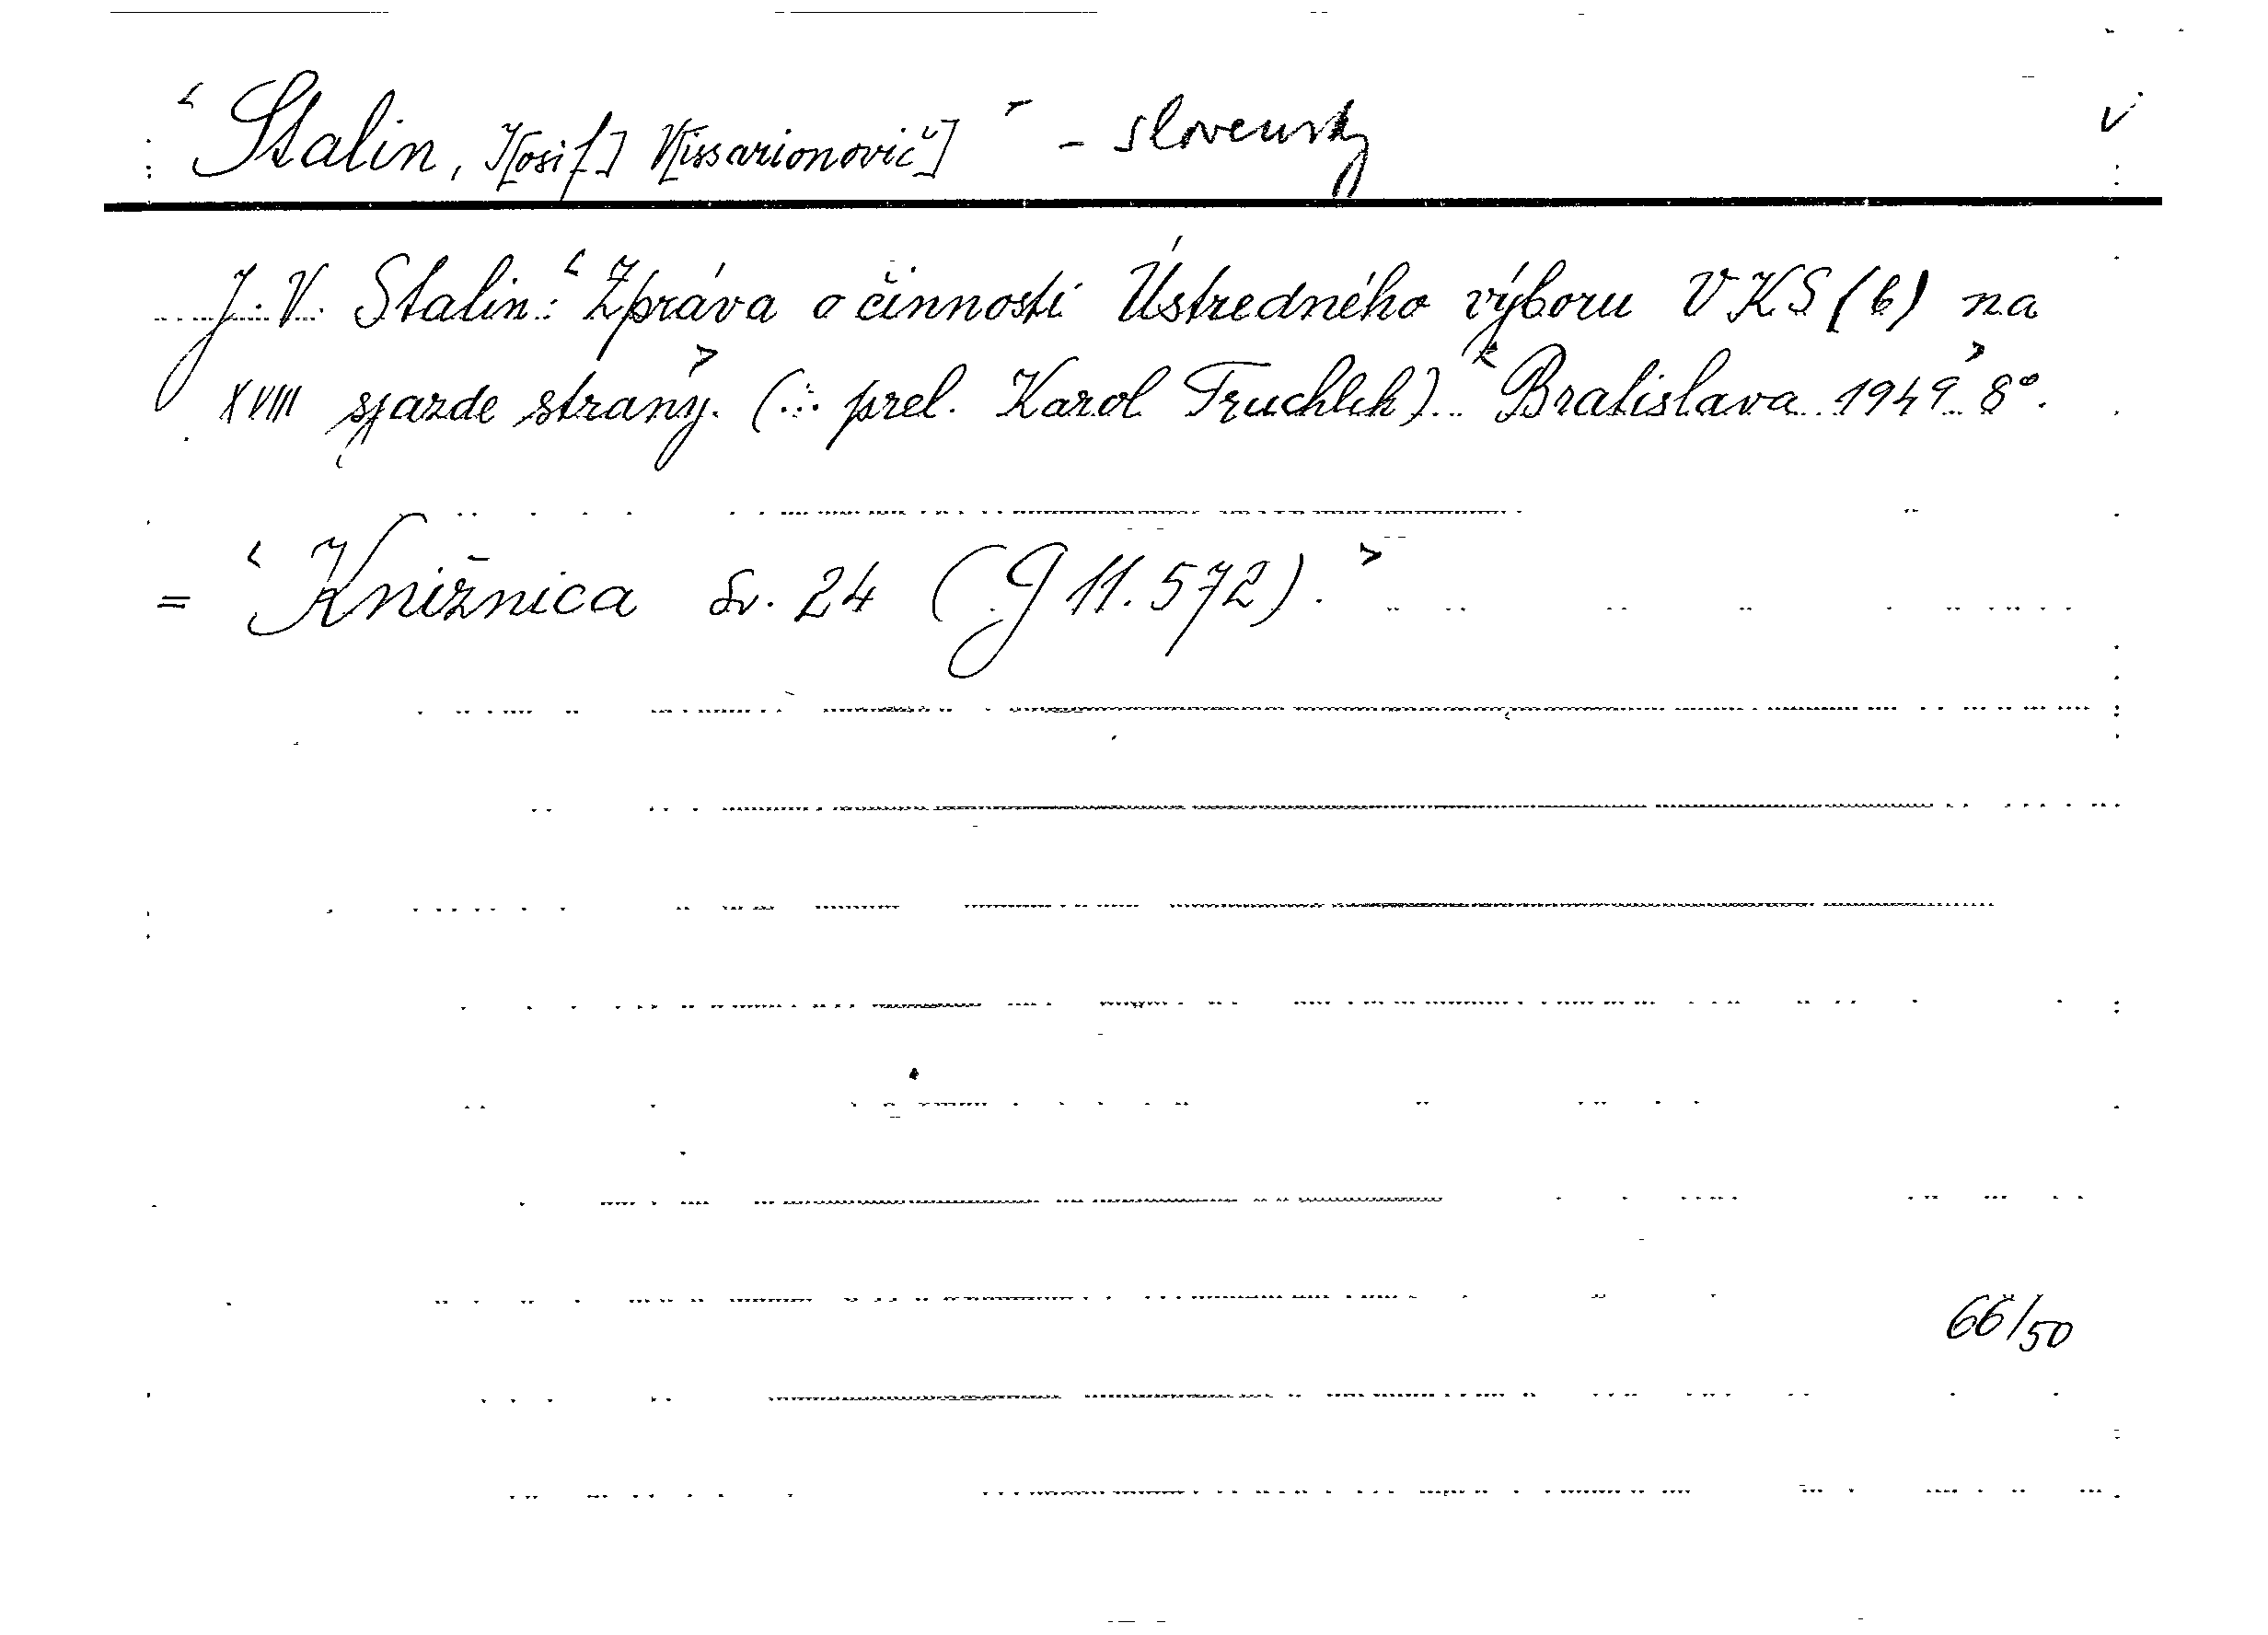 ‹Stalin, J[osif] V[issarionovič]› - slovensky v
J. V. Stalin: ‹Zpráva o činnosti Ústredného výboru VKS (b) na
XVIII sjazde strany.› (... prel. Karol Truchlík). ‹Bratislava 1949› 8°.
= ‹Knižnica sv. 24 (G 11.572).›
66/50